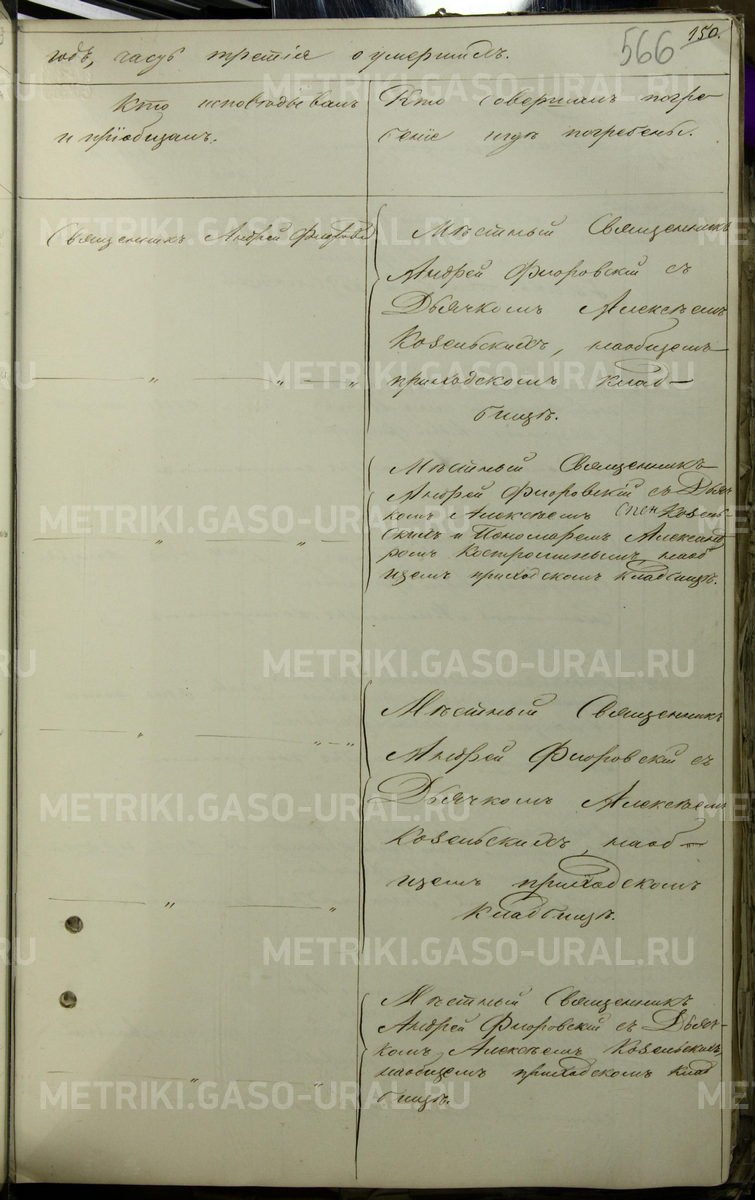 566
150.
годъ, часть третія о умершихъ.
Кто исповѣдывалъ
и пріобщалъ.
Кто совершалъ погре-
беніе и гдѣ погребены.
Священникъ Андрей Флоровскій
Мѣстный Священникъ
Андрей Флоровскій съ
Дьячкомъ Алексѣемъ
Козельскихъ, на общемъ
приходскомъ клад-
бищѣ.
" " "
Мѣстный Священникъ
Андрей Флоровскій съ Дьяч
комъ Алексѣемъ Козель-
скихъ и Пономаремъ Александ
ромъ Костроминымъ на об
щемъ приходскомъ кладбищѣ.
" " "
Мѣстный Священникъ
Андрей Флоровскій съ
Дьячкомъ Алексѣемъ
Козельскихъ, на об-
щемъ приходскомъ
кладбищѣ.
" " "
" "
Мѣстный Священникъ
Андрей Флоровскій съ Дьяч-
комъ Алексѣемъ Козельскихъ,
на общемъ приходскомъ клад
бищѣ.
" "
METRIKI.GASO-URAL.RU